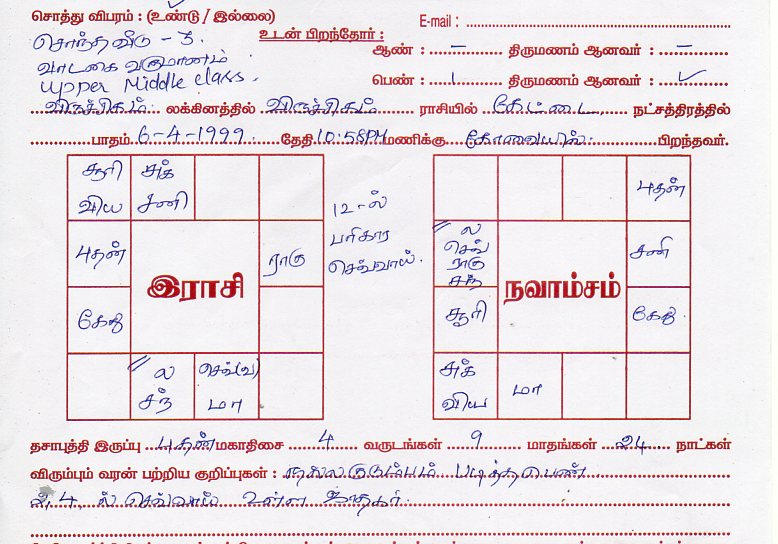 சொத்து விபரம் : (உண்டு / இல்லை)
E-mail :
சொந்தவீடு - 3.
உடன் பிறந்தோர் :
ஆண் : – திருமணம் ஆனவர் : –
வாடகை வருமானம்
upper Middle class.
பெண் : 1 திருமணம் ஆனவர் : ✓
விருச்சிகம் லக்கினத்தில் விருச்சிகம் ராசியில் கேட்டை நட்சத்திரத்தில்
பாதம் 6-4-1999 தேதி 10:58PM மணிக்கு கோவையில் பிறந்தவர்.
சூரி
விய
சுக்
சனி
புதன்
ராகு
கேது
ல
சந்
செவ்(வ)
மா
இராசி
12-ல்
பரிகார
செவ்வாய்.
புதன்
ல
செவ்
ராகு
சந்
சனி
சூரி
கேது
சுக்
விய
மா
நவாம்சம்
தசாபுத்தி இருப்பு புதன் மகாதிசை 4 வருடங்கள் 9 மாதங்கள் 24 நாட்கள்
விரும்பும் வரன் பற்றிய குறிப்புகள் : நல்ல குடும்பம் படித்த பெண்
2, 4, ல் செவ்வாய் உள்ள ஜாதகர்.